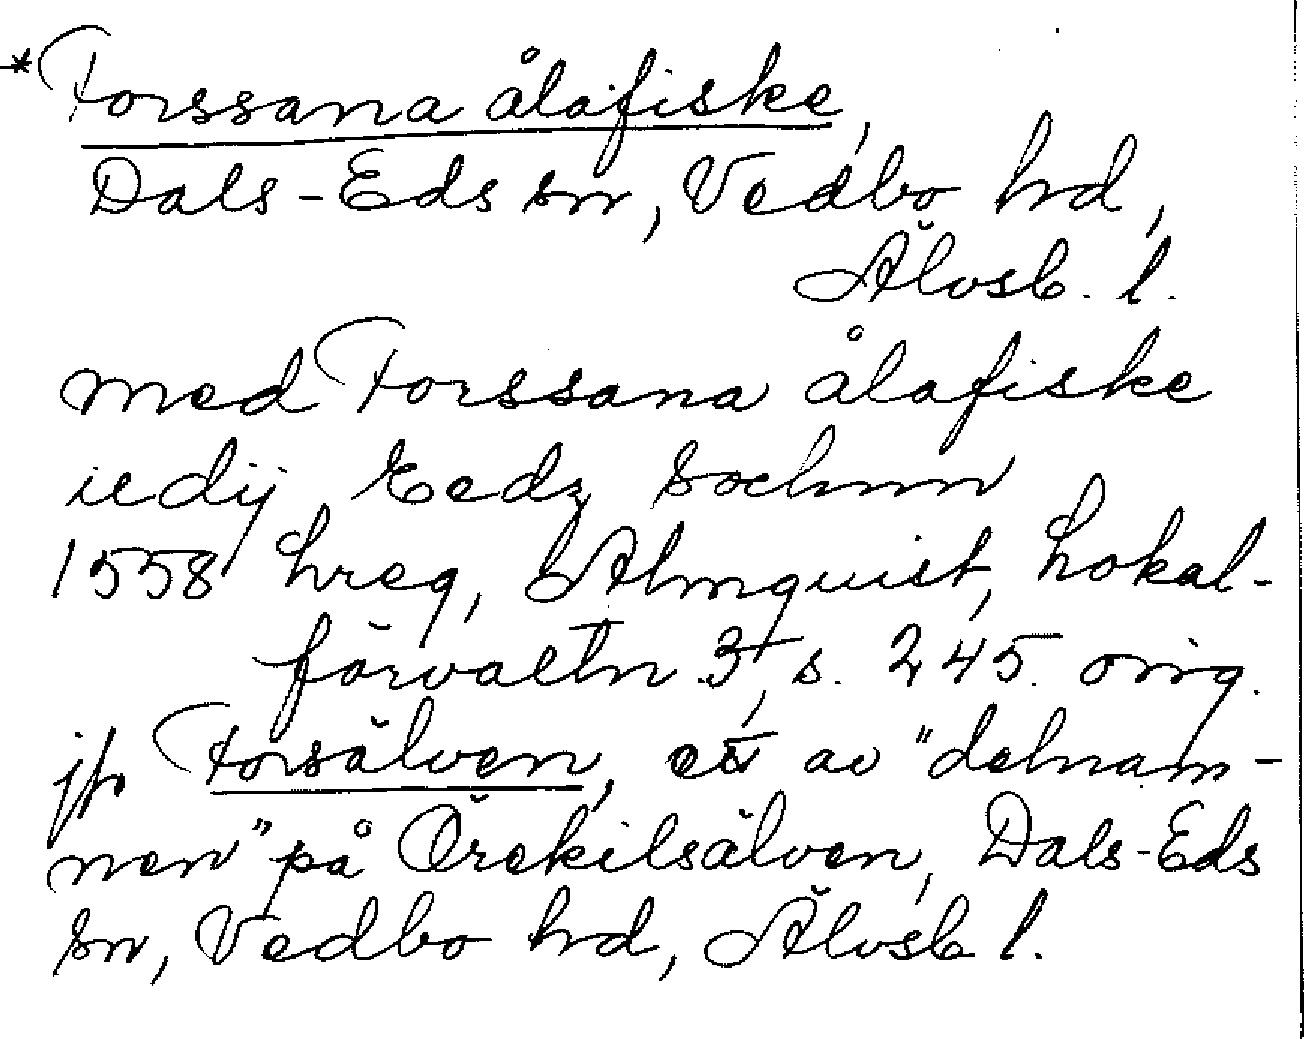 *Forssana ålafiske,
Dals-Eds sn, Vedbo hd,
Älvsb. l.
med Forssana ålafiske
iedij Eedz Sochnn
1558 hreg, Almquist, Lokal-
förvaltn 3, s. 245. orig.
jfr Forsälven, ett av "delnam-
nen" på Örekilsälven, Dals-Eds
sn, Vedbo hd, Älvsb l.